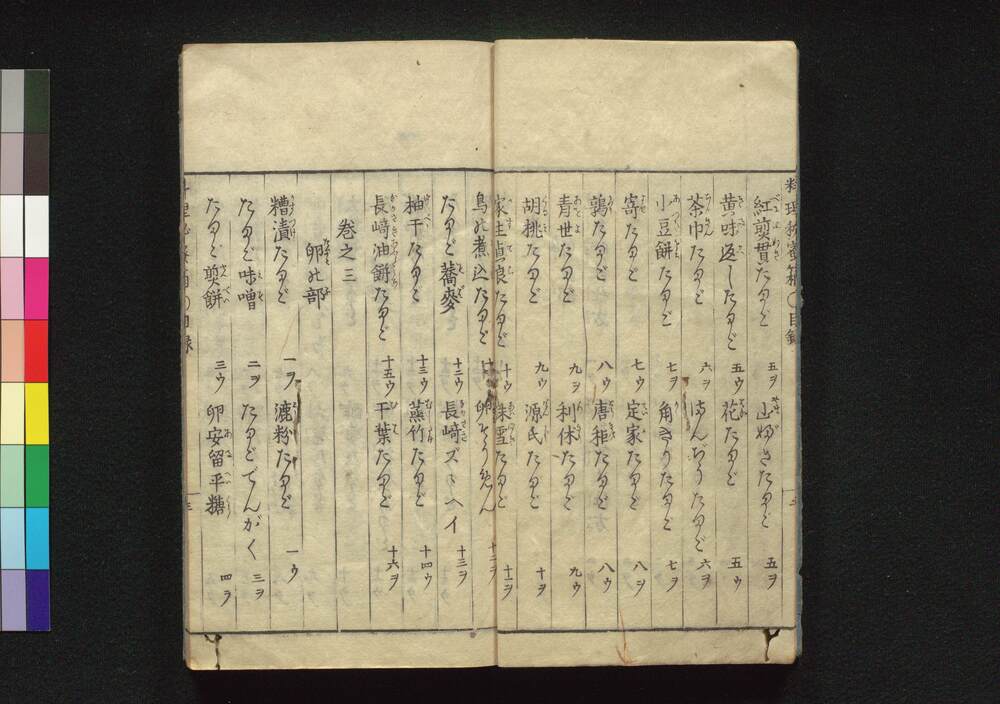 料理秘密箱 〇目録
紅煎貫たまご 五ヲ 山吹きたまご 五ヲ
黄味返したまご 五ウ 花たまご 五ウ
茶巾たまご 六ヲ まんぢうたまご 六ヲ
小豆餅たまご 七ヲ 角きりたまご 七ヲ
寄たまご 七ウ 定家たまご 八ヲ
鶉たまご 八ウ 唐秬たまご 八ウ
青世たまご 九ヲ 利休たまご 九ウ
胡桃たまご 九ウ 源氏たまご 十ヲ
家主貞良たまご 十ウ 味噌たまご 十一ヲ
鳥の煮込たまご 卵そうめん 十二ヲ
たまご蕎麥 十二ウ 長崎ズヽヘイ 十三ヲ
柚干たまご 十三ウ 蒸竹たまご 十四ウ
長崎油餅たまご 十五ウ 干葉たまご 十六ヲ
巻之三
卵の部
糟漬たまご 一ヲ 漉粉たまご 一ウ
たまご味噌 二ヲ たまごでんがく 三ヲ
たまご煎餅 三ウ 卵安留平糖 四ヲ